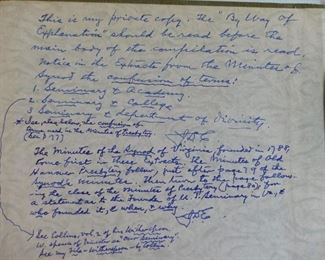 This is my private copy. The "By Way Of
Explanation" should be read before the
main body of the compilation is read.
Notice in the Extracts from the Minutes of
Synod the confusion of terms:
1. Seminary & Academy.
2. Seminary & College
3 Seminary & department of Divinity
* See, also, below, the confusion of
terms used in the Minutes of Presbytery
(See p 77)
The Minutes of the Synod of Virginia, founded in 1788,
come first in these Extracts. The Minutes of Old
Hanover Presbytery follow, just after page 79 of the
Synod's Minutes. Then
the close of the minutes of Presbytery (page 80)
a statement as to the Founder of U. T. Seminary in Va, &
who founded it, & when, & why.
See Collins, vol. 2 of his Witherspoon
W. speaks of Princeton as "our Seminary".
See my File - Witherspoon by Collins